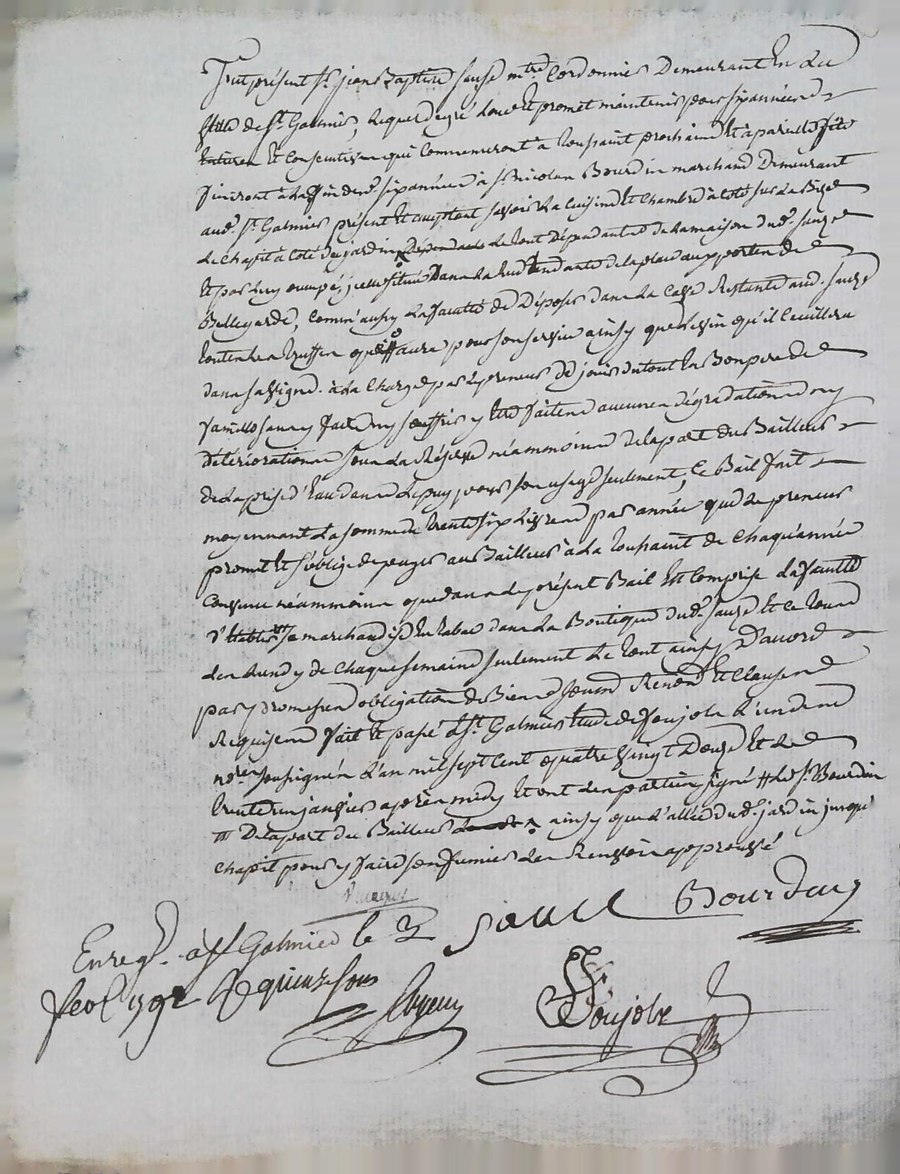 Fut présent Sr. jean Baptiste sauze mtre. Cordonnier Demeurant En La
Ville de St. Galmier, lequel degré loue Et promet maintenir pour six années
Entieres Et Consecutives qui Commenceront à Toussaint prochaine Et à pareille fête
finiront à la fin desd. six années à Sr. Nicolas Bourdin marchand Demeurant
aud. St. Galmier présent Et acceptant savoir La Cuisine Et Chambre à Coté sur La Bize
Le Chapit à Coté du jardin Le tout Dépendant de La maison dud. sauze
Et par Luy occupé, icelle située Dans La Rue tendante de la place au portes de
Bellegarde, Comm'aussy La faculté de Déposer dans La Cave Restante aud. sauze
toutes Les Truffes qu'il aura pour son service ainsy que Le vin qu'il Cueillera
dans sa vigne. à La Charge par Le preneur de jouir du tout En Bon pere de
famille sans y faire ny souffrir y Etre faites aucunes dégradations ny
Détériorations sous La Réserve néammoins de La part du Bailleur
de La prise d'Eau dans Le puy pour son usage seulement, Ce Bail fait
moyennant La somme de trente six Livres par année que Le preneur
promet Et s'oblige de payer au Bailleur à La Toussaint de Chaqu'année
Convenu néammoins que dans Le présent Bail Est Comprise La faculté
d' sa marchandise En tabac dans La Boutique dud. sauze Et Ce tous
Les Lundy de Chaque semaine seulement Le tout ainsy D'accord
par promesses obligation de Biens soumis Renon. Et Clauses
Requises fait Et passé à St. Galmier Etude de Soujole L'un des
nores. soussignés L'an mil sept Cent quatre vingt Douze Et Le
trente un janvier après midy Et ont Les parties signé # Led. Sr. Bourdin
/// De La part du Bailleur ainsy que L'allée dud. jardin jusqu'au
Chapit pour y faire son fumier Les Renvois approuvé
Enreg. à St Galmier le 3 Sauze Bourdin
fev. 1792 R. quinze sous
Soujole